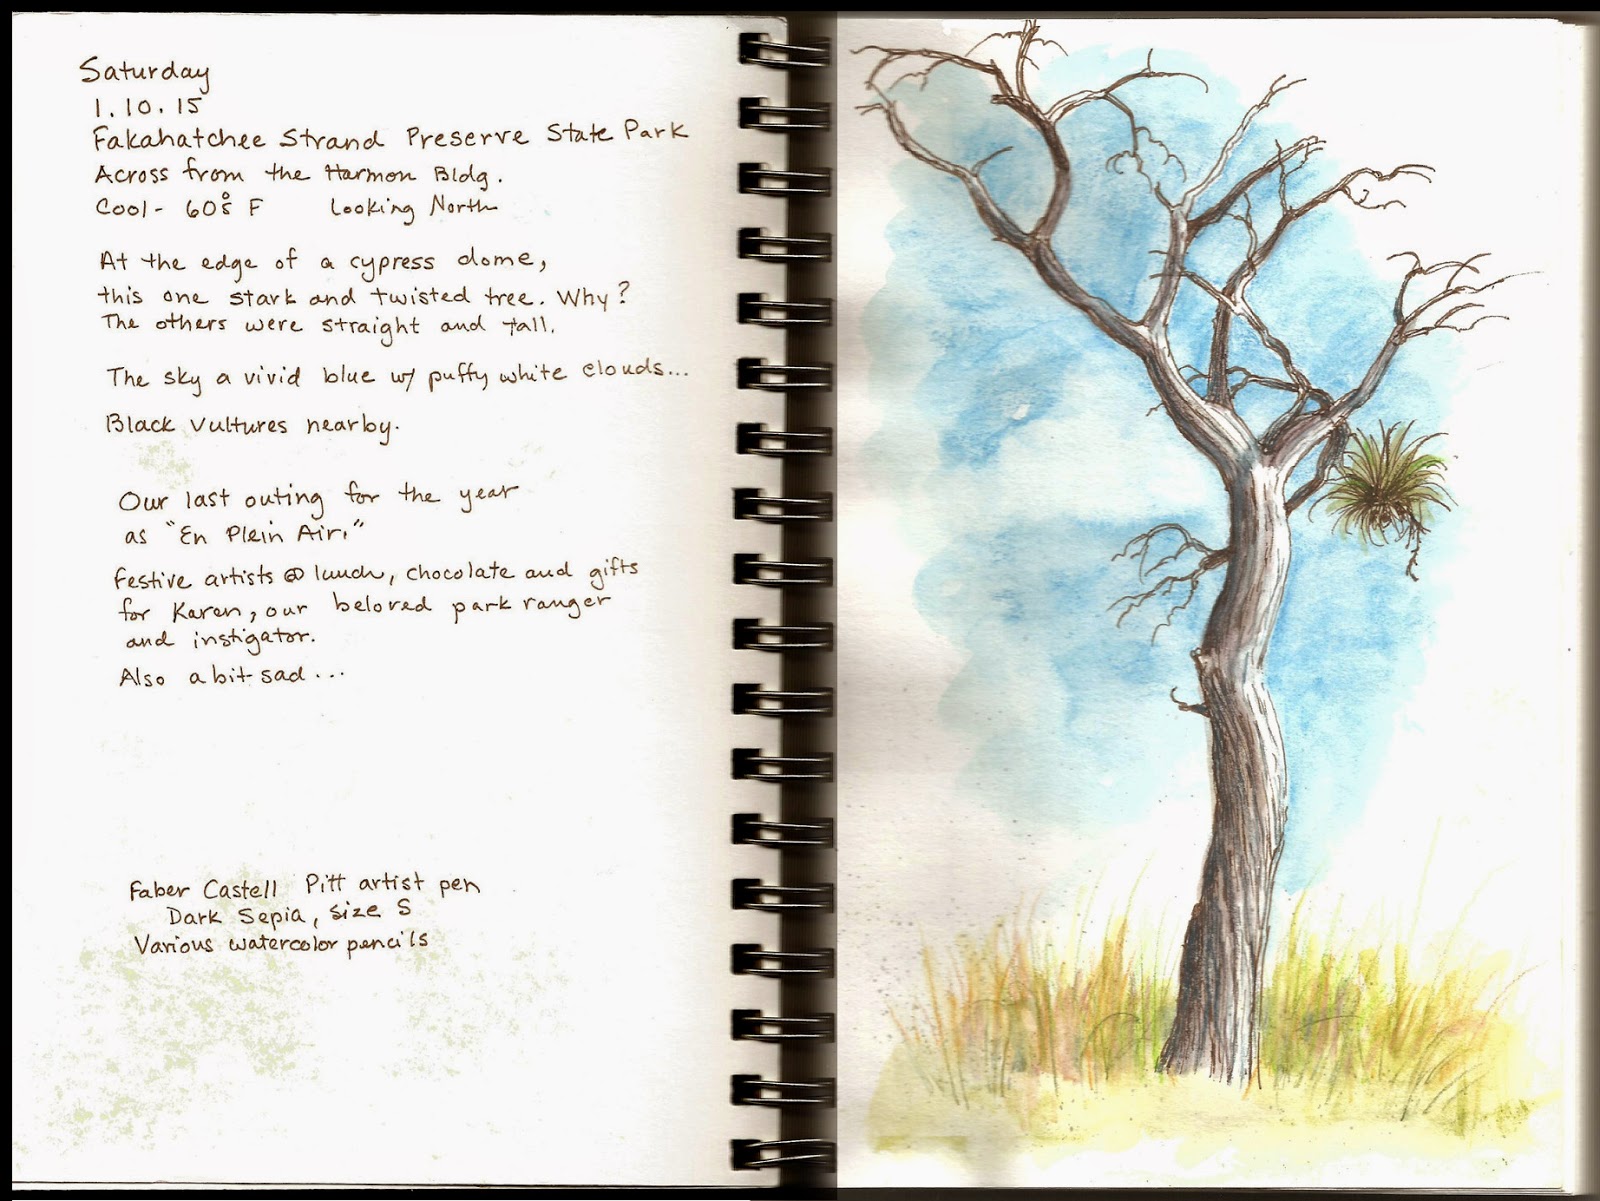 Saturday
1.10.15
Fakahatchee Strand Preserve State Park
Across from the Harmon Bldg.
Cool - 60°s F Looking North
At the edge of a cypress dome,
this one stark and twisted tree. Why?
The others were straight and tall.
The sky a vivid blue w/ puffy white clouds...
Black Vultures nearby.
Our last outing for the year
as "En Plein Air."
Festive artists @ lunch, chocolate and gifts
for Karen, our beloved park ranger
and instigator.
Also a bit sad...
Faber Castell Pitt artist pen
Dark Sepia, size S
Various watercolor pencils